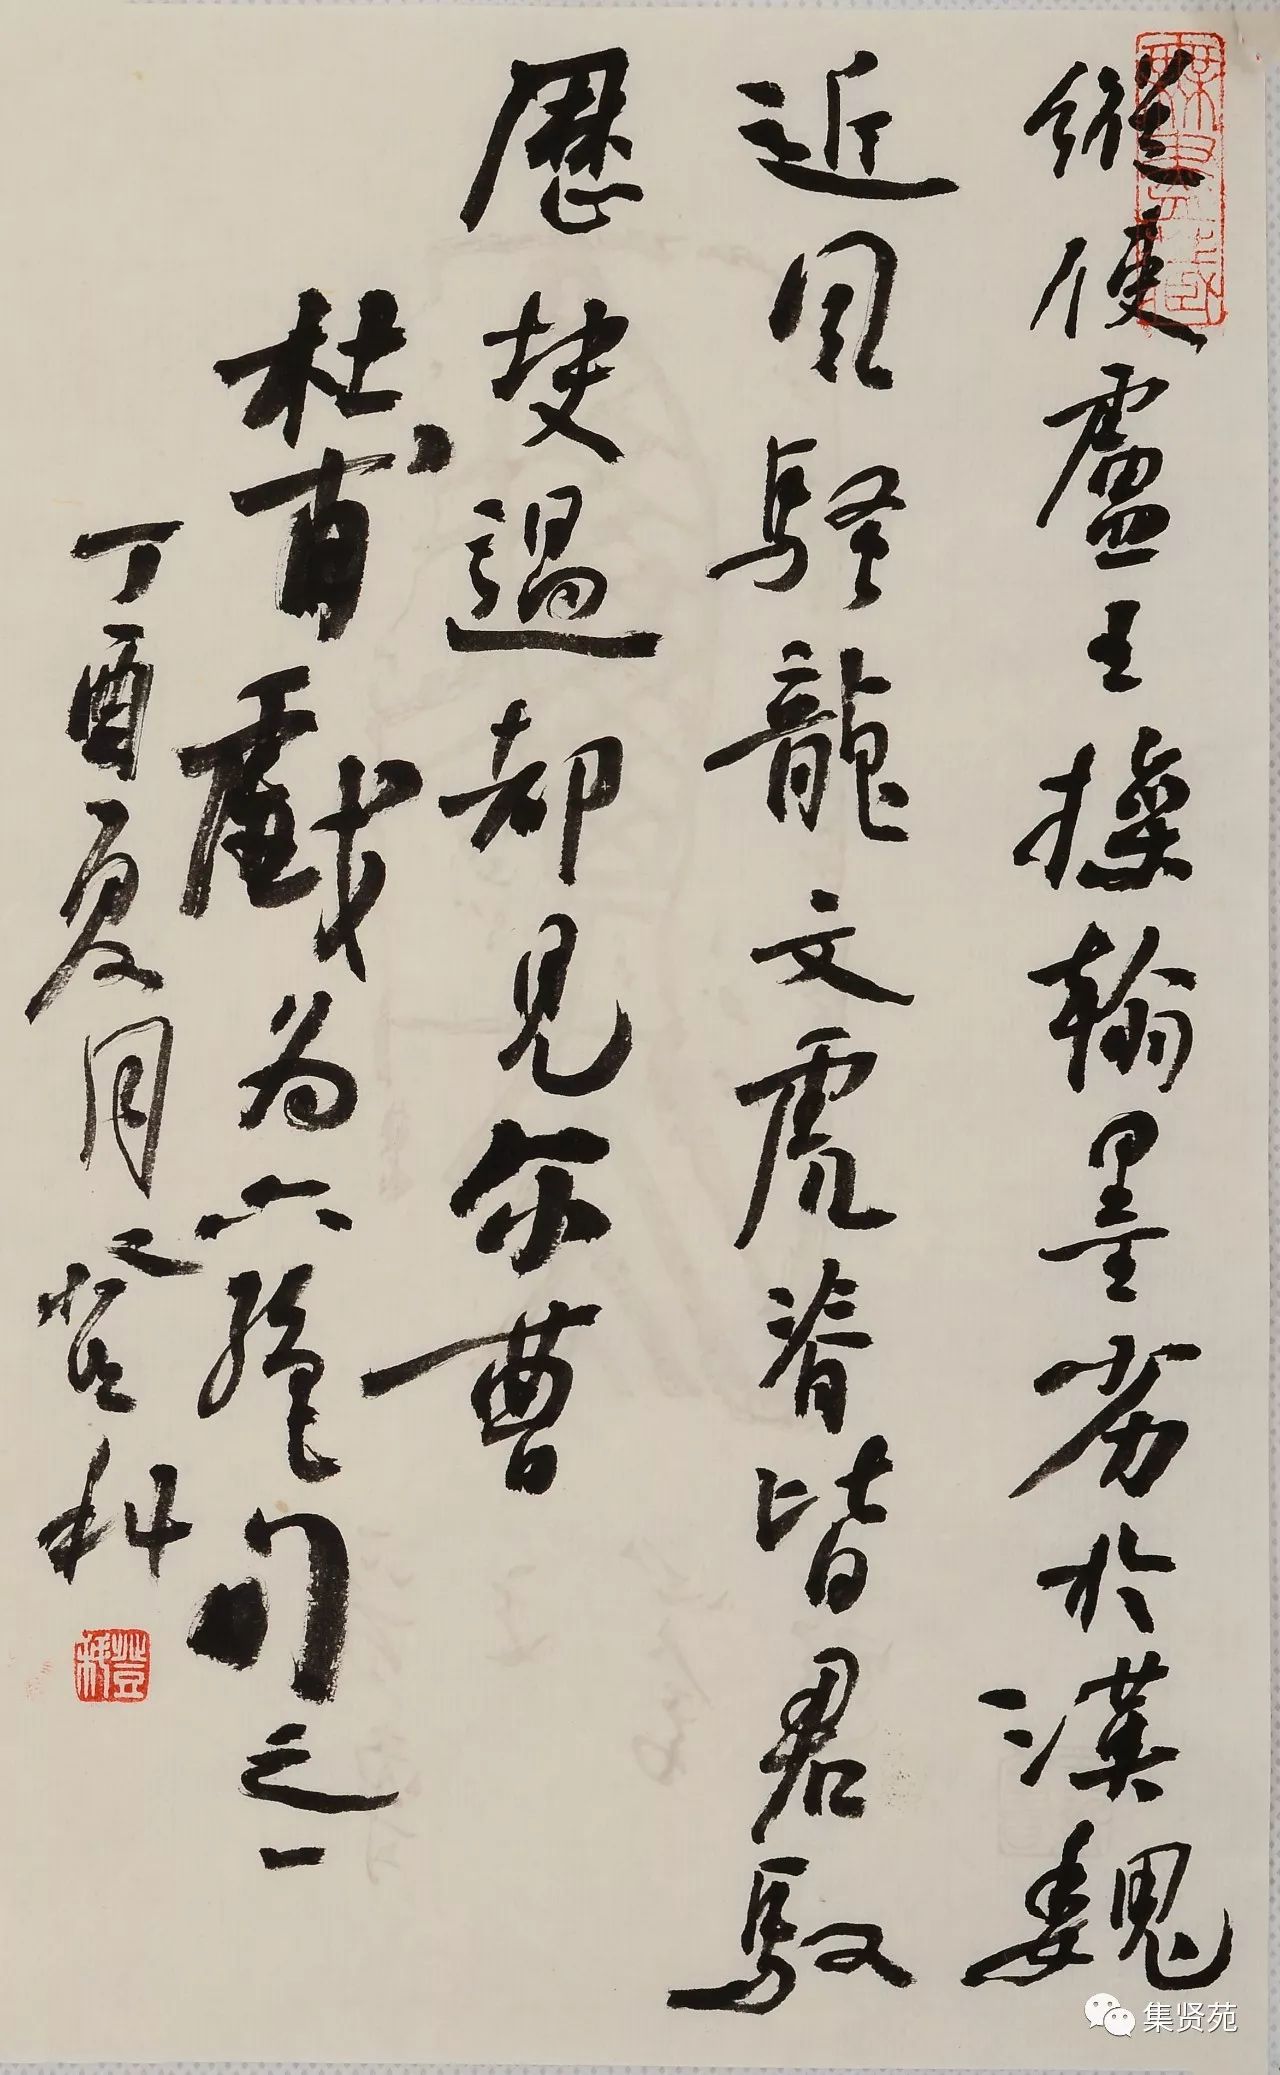 縱使盧王操翰墨劣於漢魏
近風騷龍文虎脊皆君馭
歷块過都見尔曹
杜甫戲為六絕句之一
丁酉夏月登科
登科
集贤苑